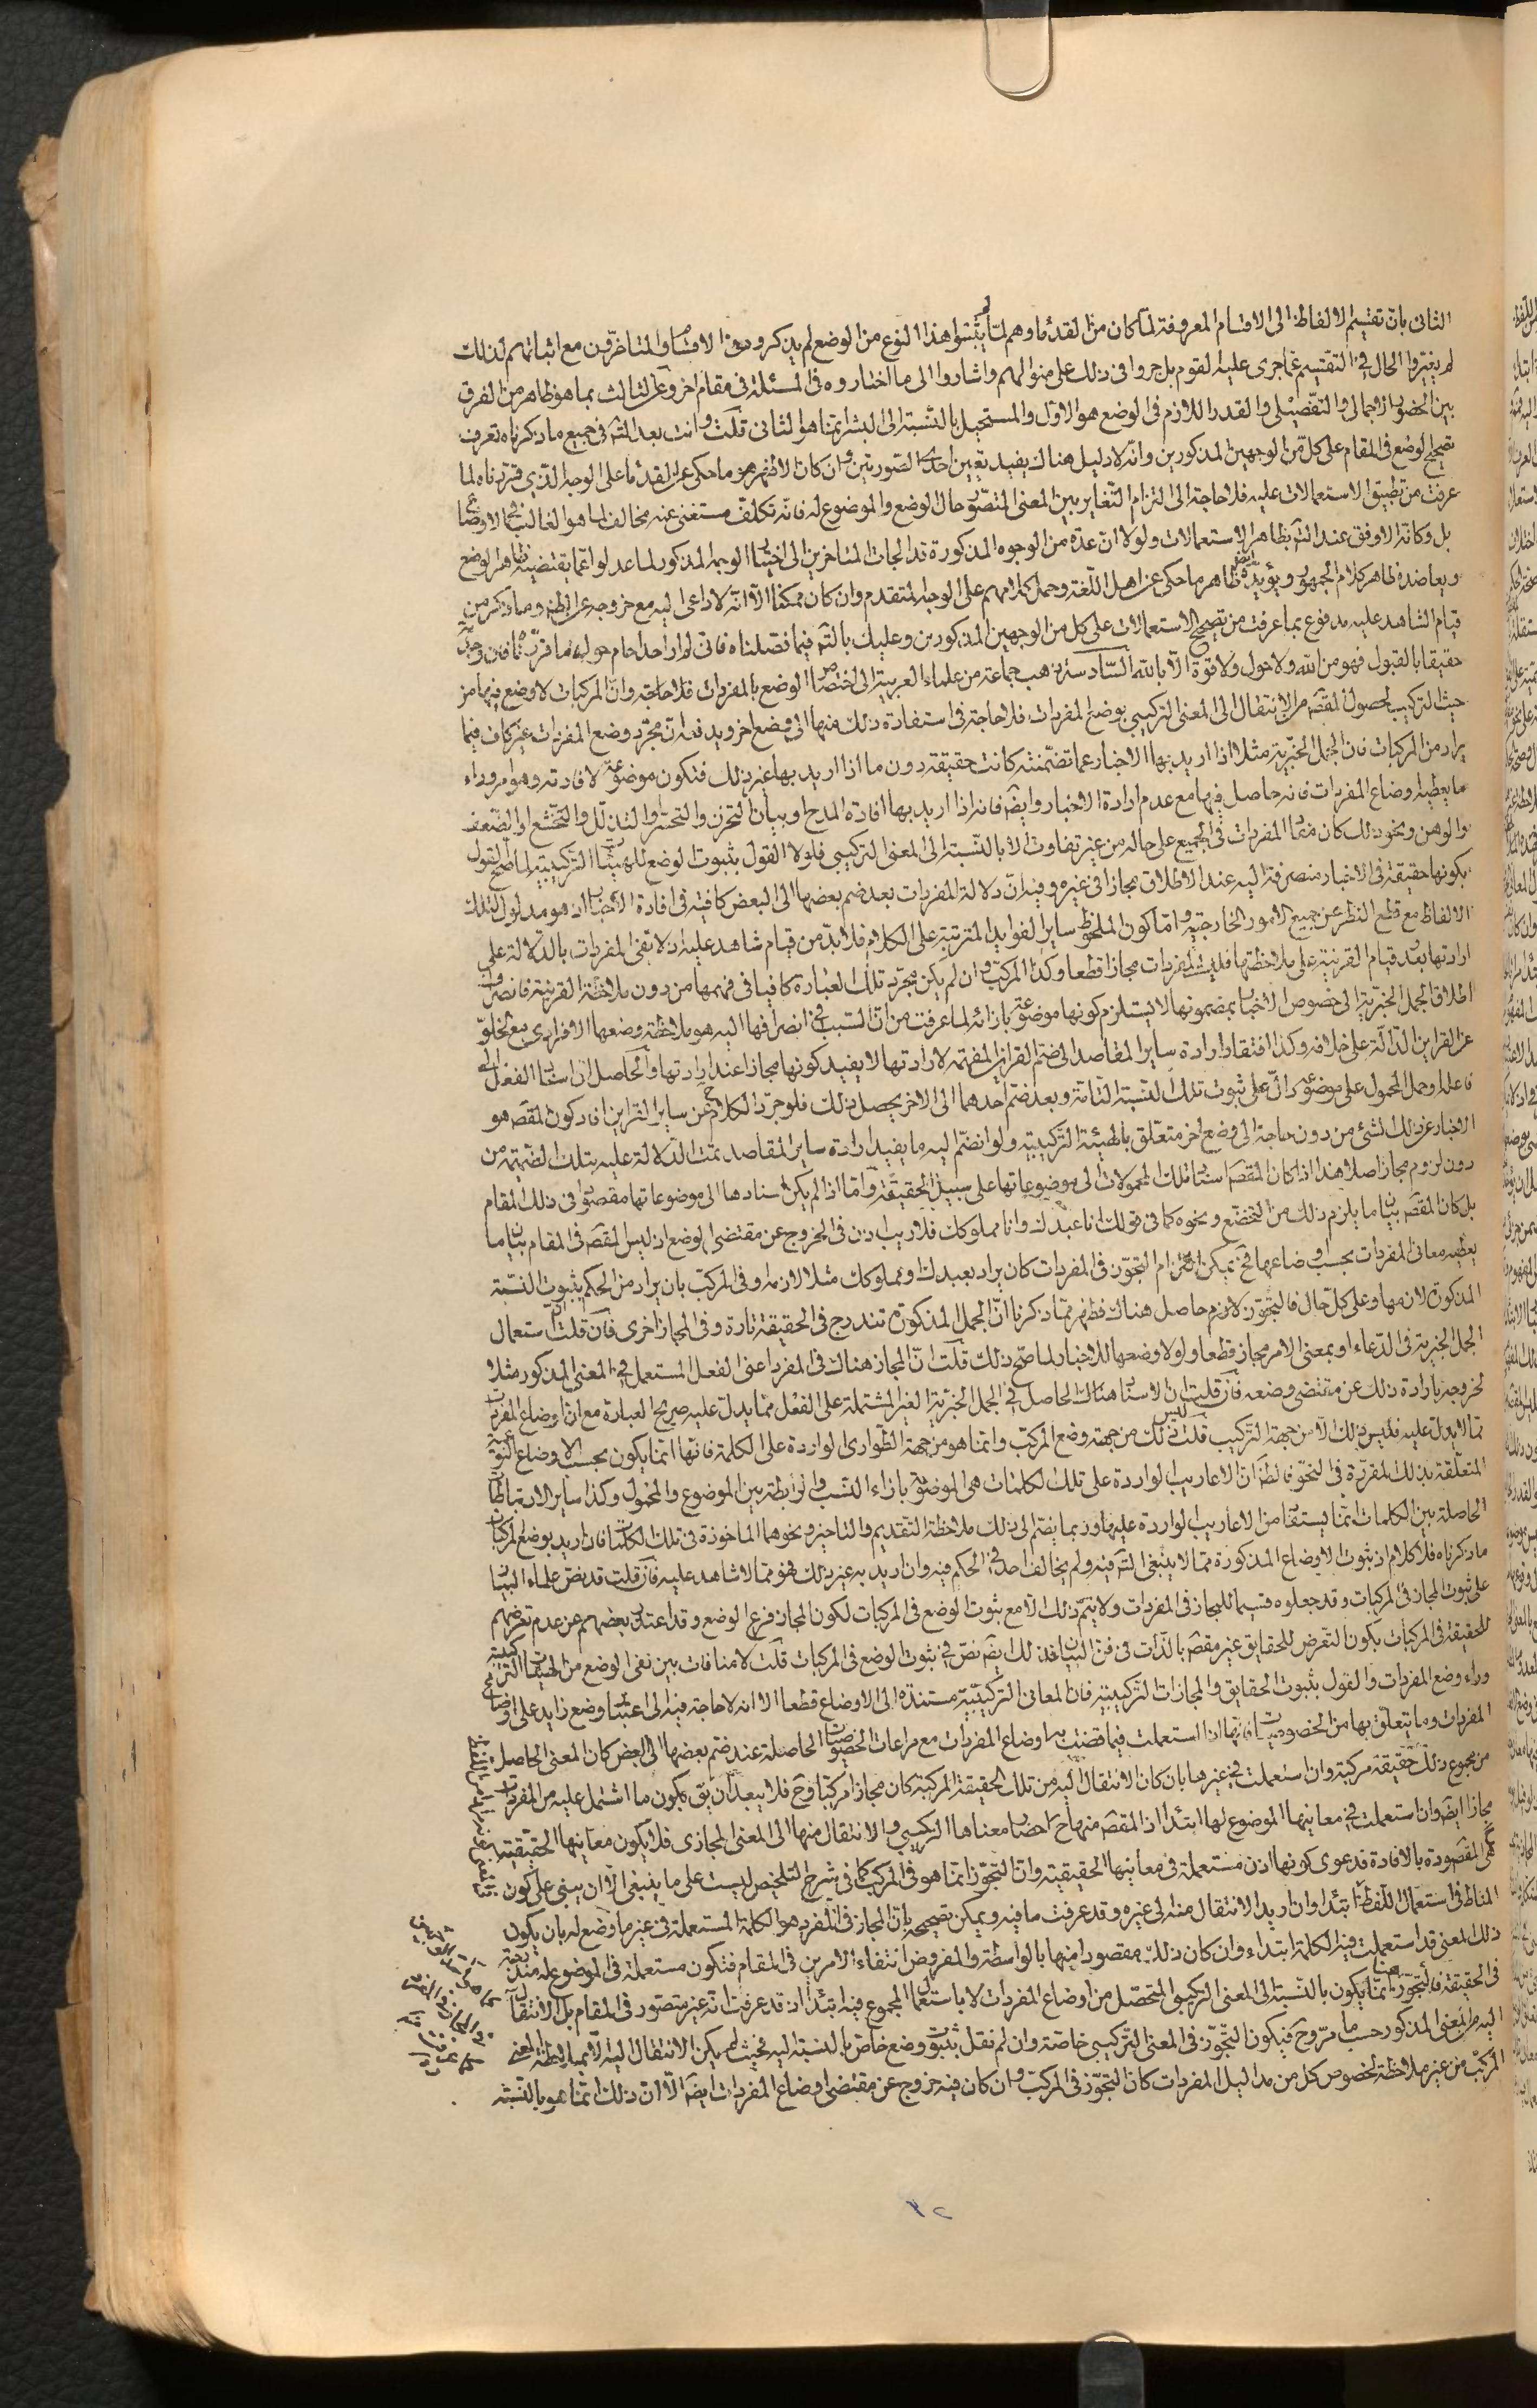 الثانى بان تقسيم الالفاظ الى الاقسام المعروفة لما كان من القدماء وهم لما لم يثبتوا هذا النوع من الوضع لم يذكروه فى الاقسام والمتاخرون مع اثباتهم لذلك
لم يغيروا الحال فى التقسيم عما جرى عليه القوم بل جروا فى ذلك على منوالهم واشاروا الى ما اختاروه فى المسئلة فى مقام اخر وعن الثالث بما هو ظاهر من الفرق
بين الحضور الاجمالى والتفصيلى والقدر اللازم فى الوضع هو الاول والمستحيل بالنسبة الى البشر انما هو الثانى قلت وانت بعد التم فى جميع ما ذكرناه تعرف
تصحيح الوضع فى المقام على كل من الوجهين المذكورين وانه لا دليل هناك يفيد تعيين احدى الصورتين وان كان الاظهر هو ما حكى عن القدماء على الوجه الذى قررناه لما
عرفت من تطبيق الاستعمالات عليه فلا حاجة الى التزام التغاير بين المعنى المتصور حال الوضع والموضوع له فانه تكلف مستغنى عنه مخالف لما هو الغالب فى الاوضاع
بل وكانه الاوفق عند التم بظاهر الاستعمالات ولولا ان عدة من الوجوه المذكورة قد الجات المتاخرين الى اختيار الوجه المذكور لما عدلوا عما يقتضيه ظاهر الوضع
ويعاضده ظاهر كلام الجمهور ويؤيده ايض ظاهر ما حكى عن اهل اللغة وحمل كلامهم على الوجه المتقدم وان كان ممكنا الا انه لا داعى اليه مع خروجه عن الظ وما ذكر من
قيام الشاهد عليه مدفوع بما عرفت من تصحيح الاستعمالات على كل من الوجهين المذكورين وعليك بالتم فيما فصلناه فانى لم ار احدا حام حوله ما قررنا فان وجدته
حقيقا بالقبول فهو من الله ولا حول ولا قوة الا بالله السادسة ذهب جماعة من علماء العربية الى اختصاص الوضع بالمفردات فلا حاجة وان المركبات لا وضع فيها من
حيث التركيب لحصول المقصد من الانتقال الى المعنى التركيبى بوضع المفردات فلا حاجة فى استفادة ذلك منها الى وضع اخر ويدفعه ان مجرد وضع المفردات غير كاف فيما
يراد من المركبات فان الجمل الخبرية مثلا اذا اريد بها الاخبار عما تضمنته كانت حقيقة دون ما اذا اريد بها غير ذلك فتكون موضوعة لافادته وهو امر وراء
ما يعطيه اوضاع المفردات فانه حاصل فيها مع عدم ارادة الاخبار وايضا فانه اذا اريد بها افادة المدح او بيان التحزن والتحسر او التذلل والتخشع او الضعف
والوهن ونحو ذلك كان معانى المفردات فى الجميع على حاله من غير تفاوت الا بالنسبة الى المعنى التركيبى فلولا القول بثبوت الوضع للهيئات التركيبية لما صح القول
بكونها حقيقة فى الاخبار منصرفة اليه عند الاطلاق مجازا فى غيره وفيه ان دلالة المفردات بعد ضم بعضها الى البعض كافية فى افادة الاخبار اذ هو مدلول لتلك
الالفاظ مع قطع النظر عن جميع الامور الخارجية واما كون الملحوظ ساير الفوايد المترتبة على الكلام فلا بد من قيام شاهد عليه اذ لا تفى المفردات بالدلالة على
ارادتها بعد قيام القرينة على ملاحظتها فليست المفردات مجازا قطعا وكذا المركب وان لم يكن مجرد تلك العبارة كافيا فى فهمها من دون ملاحظة القرينة فانصراف
اطلاق الجمل الخبرية الى خصوص الاخبار بمضمونها لا يستلزم كونها موضوعة بازائه لما عرفت من ان السبب فى انصرافها اليه هو ملاحظة وضعها الافرادى مع الخلو
عن القراين الدالة على خلافه وكذا افتقار ارادة ساير المقاصد الى ضم القراين المفهمة لارادتها لا يفيد كونها مجازا عند ارادتها والحاصل ان اسناد الفعل الى
فاعله او حمل المحمول على موضوعه دال على ثبوت تلك النسبة التامة وبعد ضم احدهما الى الاخر يحصل ذلك فلو جرد الكلام ح عن ساير القراين افاد كون المقصد هو
الاخبار عن ذلك الشئ من دون حاجة الى وضع اخر متعلق بالهيئة التركيبية ولو انضم اليه ما يفيد ارادة ساير المقاصد تمت الدلالة عليه بتلك الضميمة من
دون لزوم مجاز اصلا هذا اذا كان المقصد اسناد تلك المحمولات الى موضوعاتها على سبيل الحقيقة واما اذا لم يكن اسنادها الى موضوعاتها مقصودا فى ذلك المقام
بل كان المقصد بيان ما يلزم ذلك من التخضع ونحوه كما فى قولك انا عبدك وانا مملوكك فلا ريب اذن فى الخروج عن مقتضى الوضع اذ ليس المقصد فى المقام بيان ما
يعطيه معانى المفردات بحسب اوضاعها فح يمكن التزام التجوز فى المفردات كان يراد بعبدك ومملوكك مثلا لازمه او فى المركب بان يراد من الحكم بثبوت النسبة
المذكورة لازمها وعلى كل حال فالتجوز لازم حاصل هناك فظهر مما ذكرنا ان الجمل المذكورة تندرج فى الحقيقة تارة وفى المجاز اخرى فان قلت ان استعمال
الجمل الخبرية فى الدعاء او بمعنى الامر مجاز قطعا ولولا وضعها للاخبار لما صح ذلك قلت ان المجاز هناك فى المفرد اعنى الفعل المستعمل فى المعنى المذكور مثلا
لخروجه بارادة ذلك عن مقتضى وضعه فان قلت ان الاسناد هناك الحاصل فى الجمل الخبرية الغير المشتملة على الفعل مما يدل عليه صريح العبارة مع ان اوضاع المفردات
مما لا يدل عليه فليس ذلك الا من جهة التركيب قلت ليس ذلك من جهة وضع المركب وانما هو من جهة الطوارى الواردة على الكلمة فانها انما يكون بحسب الاوضاع النوعية
المتعلقة بذلك المقررة فى النحو فالظ ان الاعاريب الواردة على تلك الكلمات هى الموضوعة بازاء النسب والروابط بين الموضوع والمحمول وكذا ساير الارتباطات
الحاصلة بين الكلمات انما يستفاد من الاعاريب الواردة عليها وربما يضم الى ذلك ملاحظة التقديم والتاخير ونحوهما الماخوذة فى تلك الكلمات فان اريد بوضع المركبات
ما ذكرناه فلا كلام اذ ثبوت الاوضاع المذكورة مما لا ينبغى التم فيه ولم يخالف احد فى الحكم فيه وان اريد به غير ذلك فهو مما لا شاهد عليه فان قلت قد نص علماء البيان
على ثبوت المجاز فى المركبات وقد جعلوه قسيما للمجاز فى المفردات ولا يتم ذلك الا مع ثبوت الوضع فى المركبات لكون المجاز فرع الوضع وقد اعتذر بعضهم عن عدم تعرضهم
للحقيقة فى المركبات بكون التعرض للحقايق غير مقصد بالذات فى فن البيان فذلك ايض نص فى ثبوت الوضع فى المركبات قلت لا منافات بين نفى الوضع من الهيئات التركيبية
وراء وضع المفردات والقول بثبوت الحقايق والمجازات التركيبية فان المعانى التركيبية مستندة الى الاوضاع قطعا الا انه لا حاجة فيه الى اعتبار وضع زايد على اوضاع
المفردات وما يتعلق بها من الخصوصيات فانها ان استعملت فيما قضت به اوضاع المفردات مع مراعات الخصوصيات الحاصلة عند ضم بعضها الى البعض كان المعنى الحاصل
من مجموع ذلك حقيقة مركبة وان استعملت فى غيرها بان كان الانتقال اليه من تلك الحقيقة المركبة كان مجازا مركبا وح فلا يبعد ان يق بكون ما اشتمل عليه من المفردات
مجازا ايض وان استعملت فى معانيها الموضوع لها ابتداء اذ المقصد منها ح احضار معناها التركيبى والانتقال منها الى المعنى المجازى فلا يكون معانيها الحقيقية
هى المقصودة بالافادة فدعوى كونها اذن مستعملة فى معانيها الحقيقية وان التجوز انما هو فى المركب كما فى شرح التلخيص ليست على ما ينبغى الا ان يبنى على كون
المناط فى استعمال اللفظ ابتداء وان اريد الانتقال منه الى غيره وقد عرفت ما فيه ويمكن تصحيحه بان المجاز فى المفرد هو الكلمة المستعملة فى غير ما وضع له بان يكون
ذلك المعنى قد استعملت فيه الكلمة ابتداء وان كان ذلك مقصودا منها بالواسطة والمفروض انتفاء الامرين فى المقام فتكون مستعملة فى الموضوع له مندرجة
فى الحقيقة فالتجوز هنا انما يكون بالنسبة الى المعنى التركيبى المتحصل من اوضاع المفردات لا باستعمال المجموع فيه ابتداء اذ قد عرفت انه غير متصور فى المقام بل الانتقال
اليه من المعنى المذكور حسب ما مر وح فيكون التجوز فى المعنى التركيبى خاصة وان لم نقل بثبوت وضع خاص بالنسبة اليه فحيث لم يكن الانتقال اليه الا بملاحظة المعنى
المركب من غير ملاحظة لخصوص كل من مداليل المفردات كان التجوز فى المركب وان كان فيه خروج عن مقتضى اوضاع المفردات ايضا الا ان ذلك انما هو بالنسبة
١٢